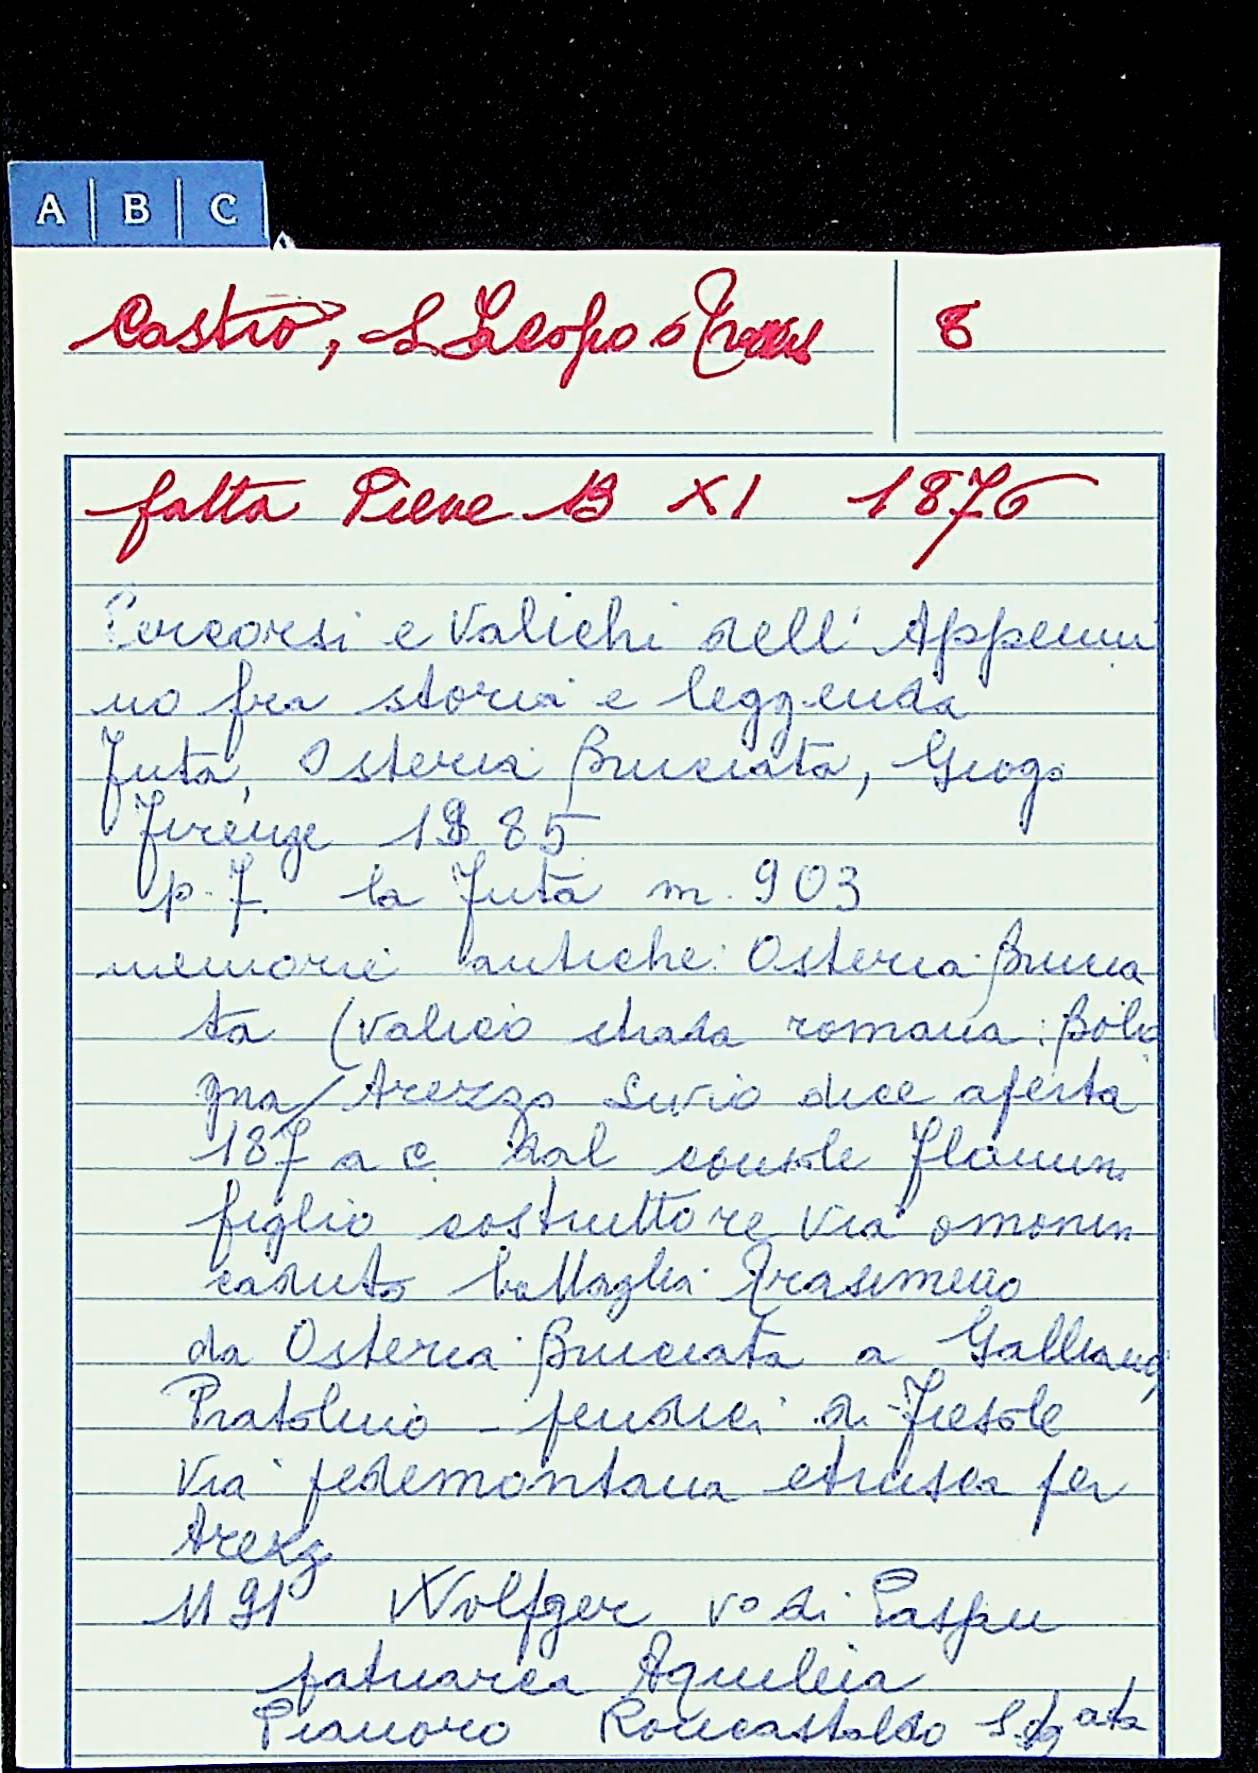 A | B | C
Castro, S Iacopo a 8
fatta Pieve 13 XI 1876
Percorsi e Valichi dell' Appenni
no fra storia e leggenda
Futa, Osteria Bruciata, Giogo
Firenze 1985
p. 7. la Futa m. 903
memorie antiche: Osteria Brucia
ta (valico strada romana: Bolo
gna/Arezzo Livio dice aperta
187 a c. dal console Flamin
figlio costruttore Via omonim
caduto battaglia Trasimeno
da Osteria Bruciata a Galliano,
Pratolino - pendici di Fiesole
Via pedemontana etrusca per
Arezzo
1191 Wolfger vo di Passau
patriarca Aquileia
Pianoro Roncastaldo S Agata